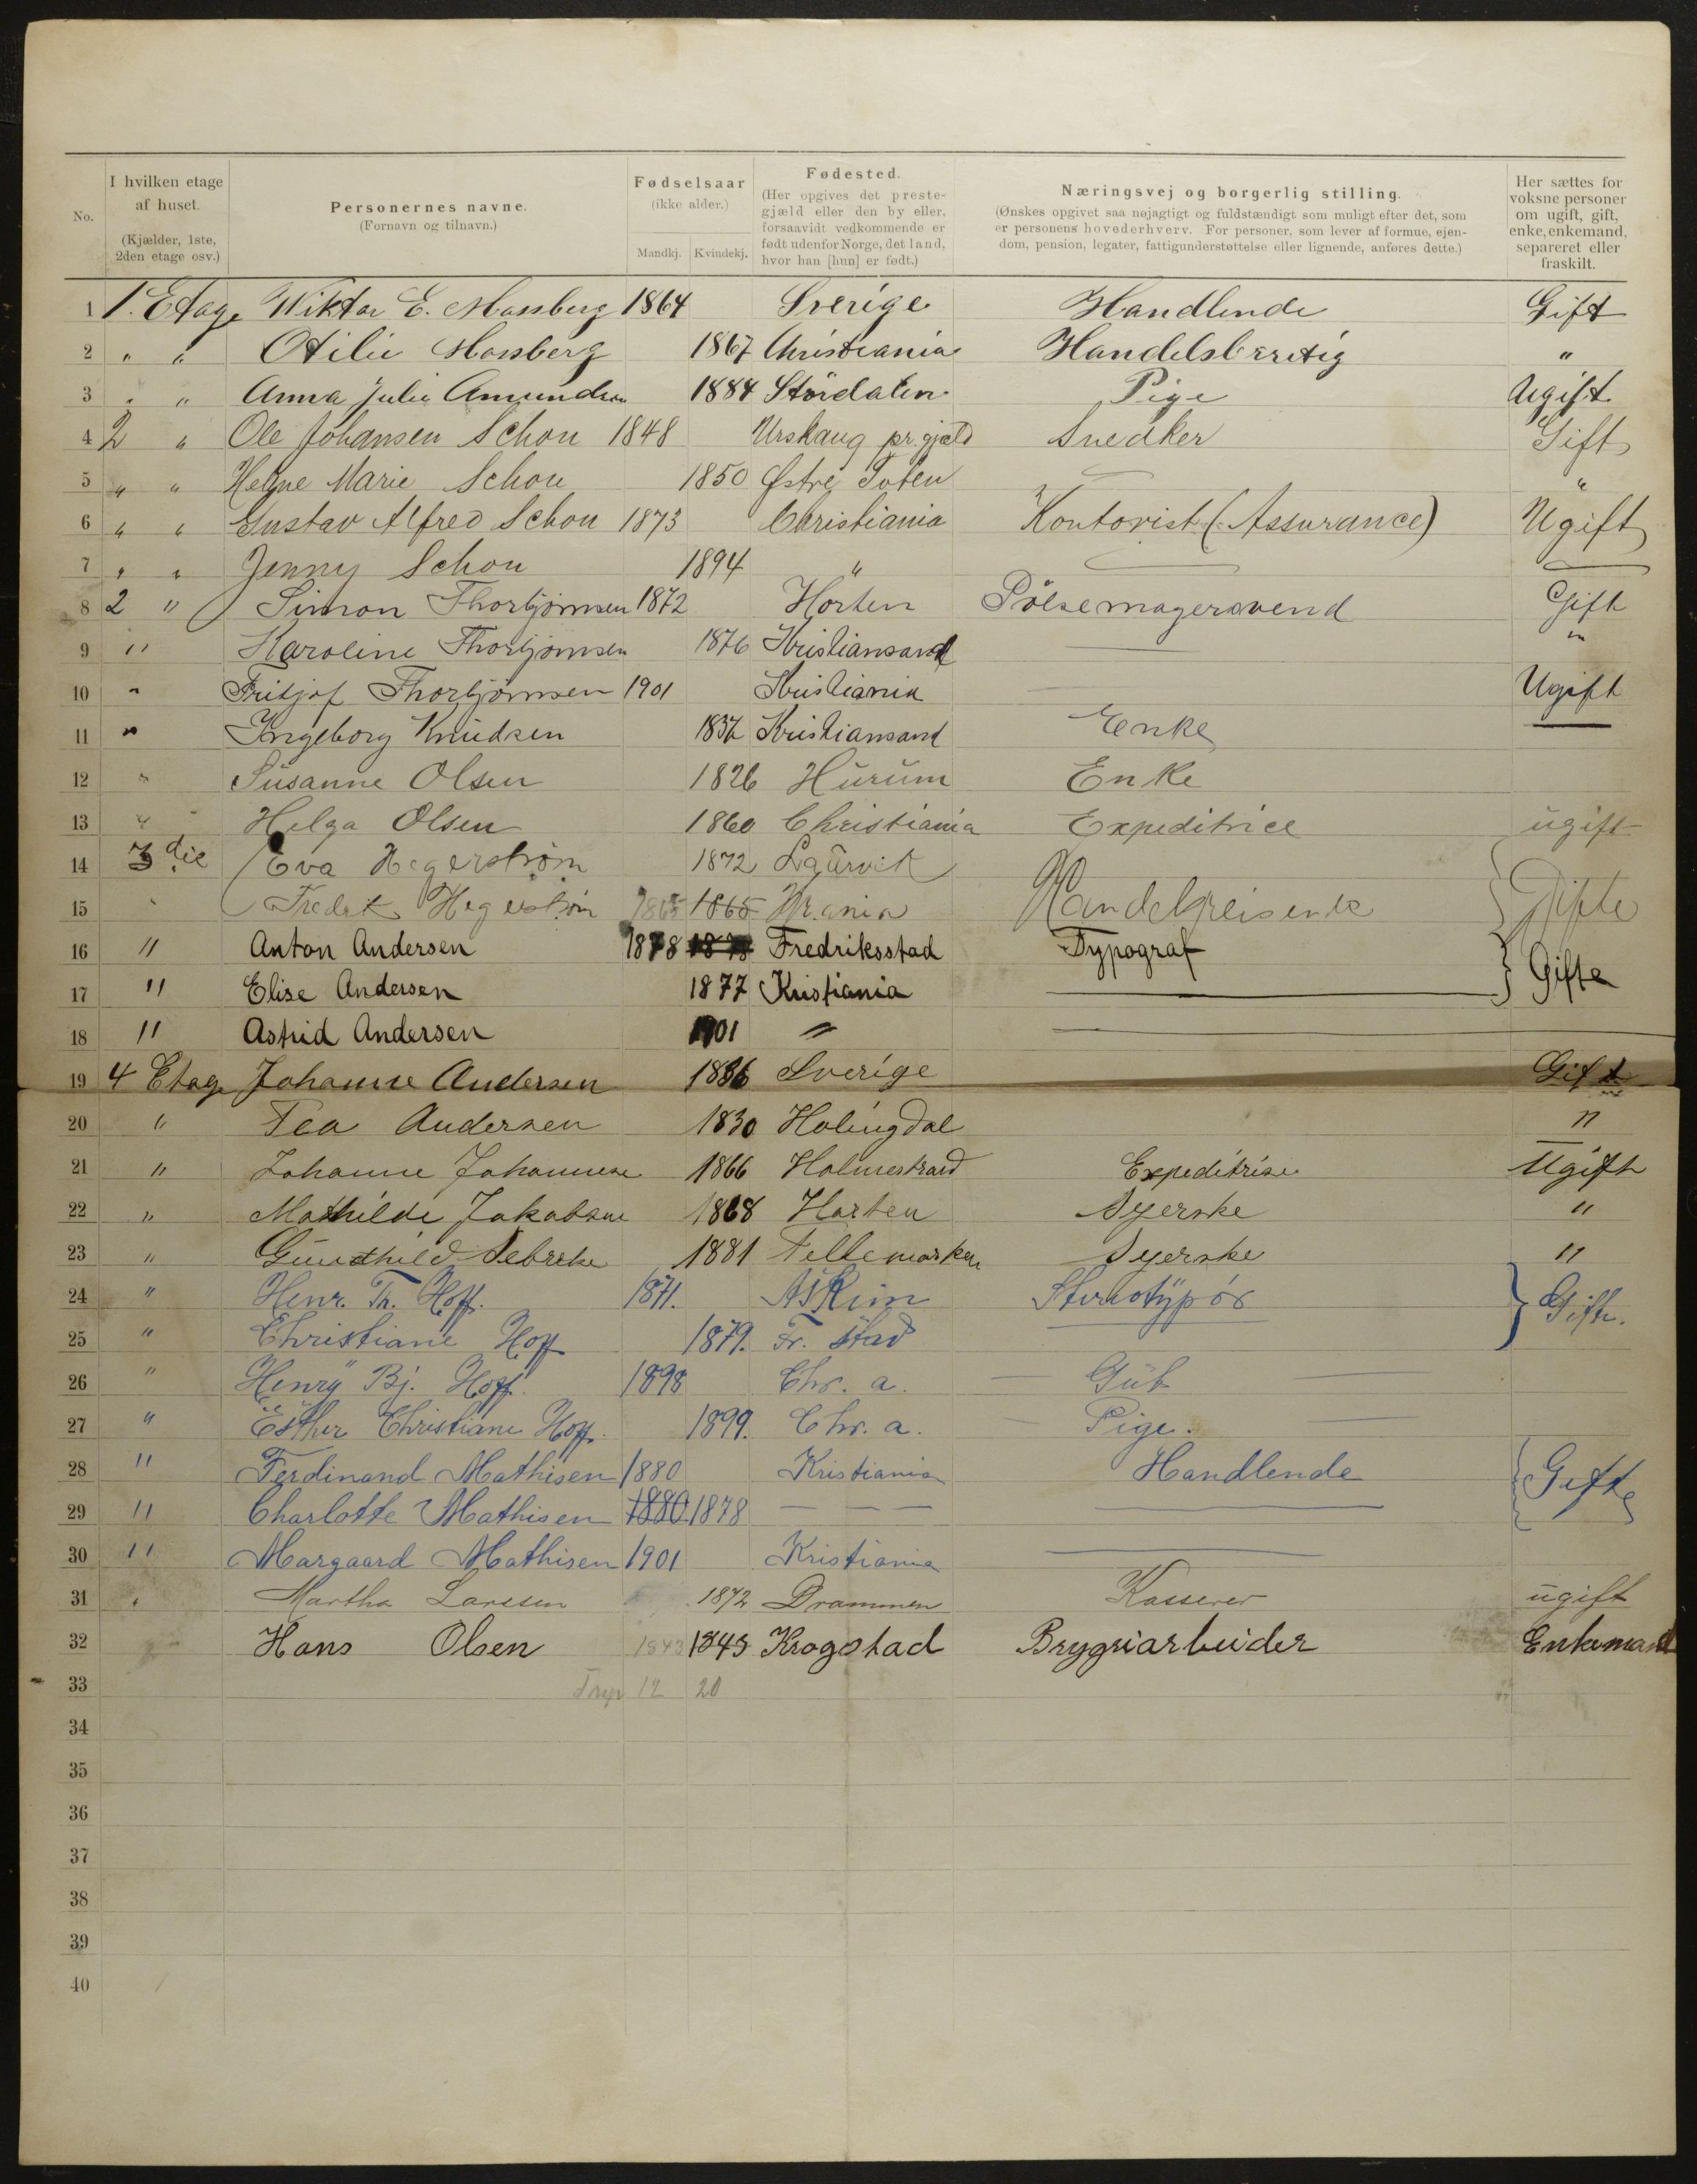 No.
I hvilken etage af huset. (Kjælder, 1ste, 2den etage osv.)
Personernes navne. (Fornavn og tilnavn.)
Fødselsaar (ikke alder.) Mandkj. Kvindekj.
Fødested. (Her opgives det prestegjæld eller den by eller, forsaavidt vedkommende er født udenfor Norge, det land, hvor han [hun] er født.)
Næringsvej og borgerlig stilling. (Ønskes opgivet saa nøjagtigt og fuldstændigt som muligt efter det, som er personens hovederhverv. For personer, som lever af formue, ejendom, pension, legater, fattigunderstøttelse eller lignende, anføres dette.)
Her sættes for voksne personer om ugift, gift, enke, enkemand, separeret eller fraskilt.
1 1. Etage Wiktor E. Mossberg 1864 Sverige Handlende Gift
2 " " Otilie Mossberg 1867 Christiania Handelsberetig "
3 " " Anna Julie Amundsen 1884 Stördalen Pige Ugift
4 2 " Ole Johansen Schou 1848 Urskaug pr.gjæld Snedker Gift
5 " " Helene Marie Schou 1850 Østre Toten "
6 " " Gustav Alfred Schou 1873 Christiania Kontorist (Assurance) Ugift
7 " " Jenny Schou 1894 "
8 2 " Simon Thorbjørnsen 1872 Horten Pölsemagersvend Gift
9 " Karoline Thorbjørnsen 1876 Kristiansand "
10 " Fritjof Thorbjørnsen 1901 Kristiania Ugift
11 " Ingeborg Knudsen Kristiansand Enke
12 " Susanne Olsen 1826 Hurum Enke
13 " Helga Olsen 1860 Christiania Expeditrice ugift
14 3die Eva Hegerstrøm 1872 Laurvik
15 " Fredrk Hegerstrøm 1865 1865 Kr.ania Handelsreisende Gifte
16 " Anton Andersen 1878 1878 Fredriksstad Typograf
17 " Elise Andersen 1877 Kristiania Gifte
18 " Astrid Andersen 1901 "
19 4 Etage Johanne Andersen 1836 Sverige Gift
20 " Tea Andersen 1830 Holingdal "
21 " Johanne Johannesen 1866 Holmestrand Expeditrise Ugift
22 " Mathilde Jakobsen 1868 Horten Syerske "
23 " Gunhild 1881 Tellemarken Syerske "
24 " Henr. Th. Hoff. 1871. Askim Stereotypør Gifte.
25 " Christiane Hoff 1879. Fr. stad
26 " Henry Bj. Hoff. 1898 Chr. a. — Gut —
27 " Esther Christiane Hoff. 1899. Chr. a. — Pige. —
28 " Ferdinand Mathisen 1880 Kristiania Handlende Gifte
29 " Charlotte Mathisen 1880 1878 — — —
30 " Margaard Mathisen 1901 Kristiania
31 " Martha Larssen 1872 Drammen Kasserer ugift
32 Hans Olsen 1843 1843 Krogstad Bryggriarbeider Enkemand
33 12 20
34
35
36
37
38
39
40